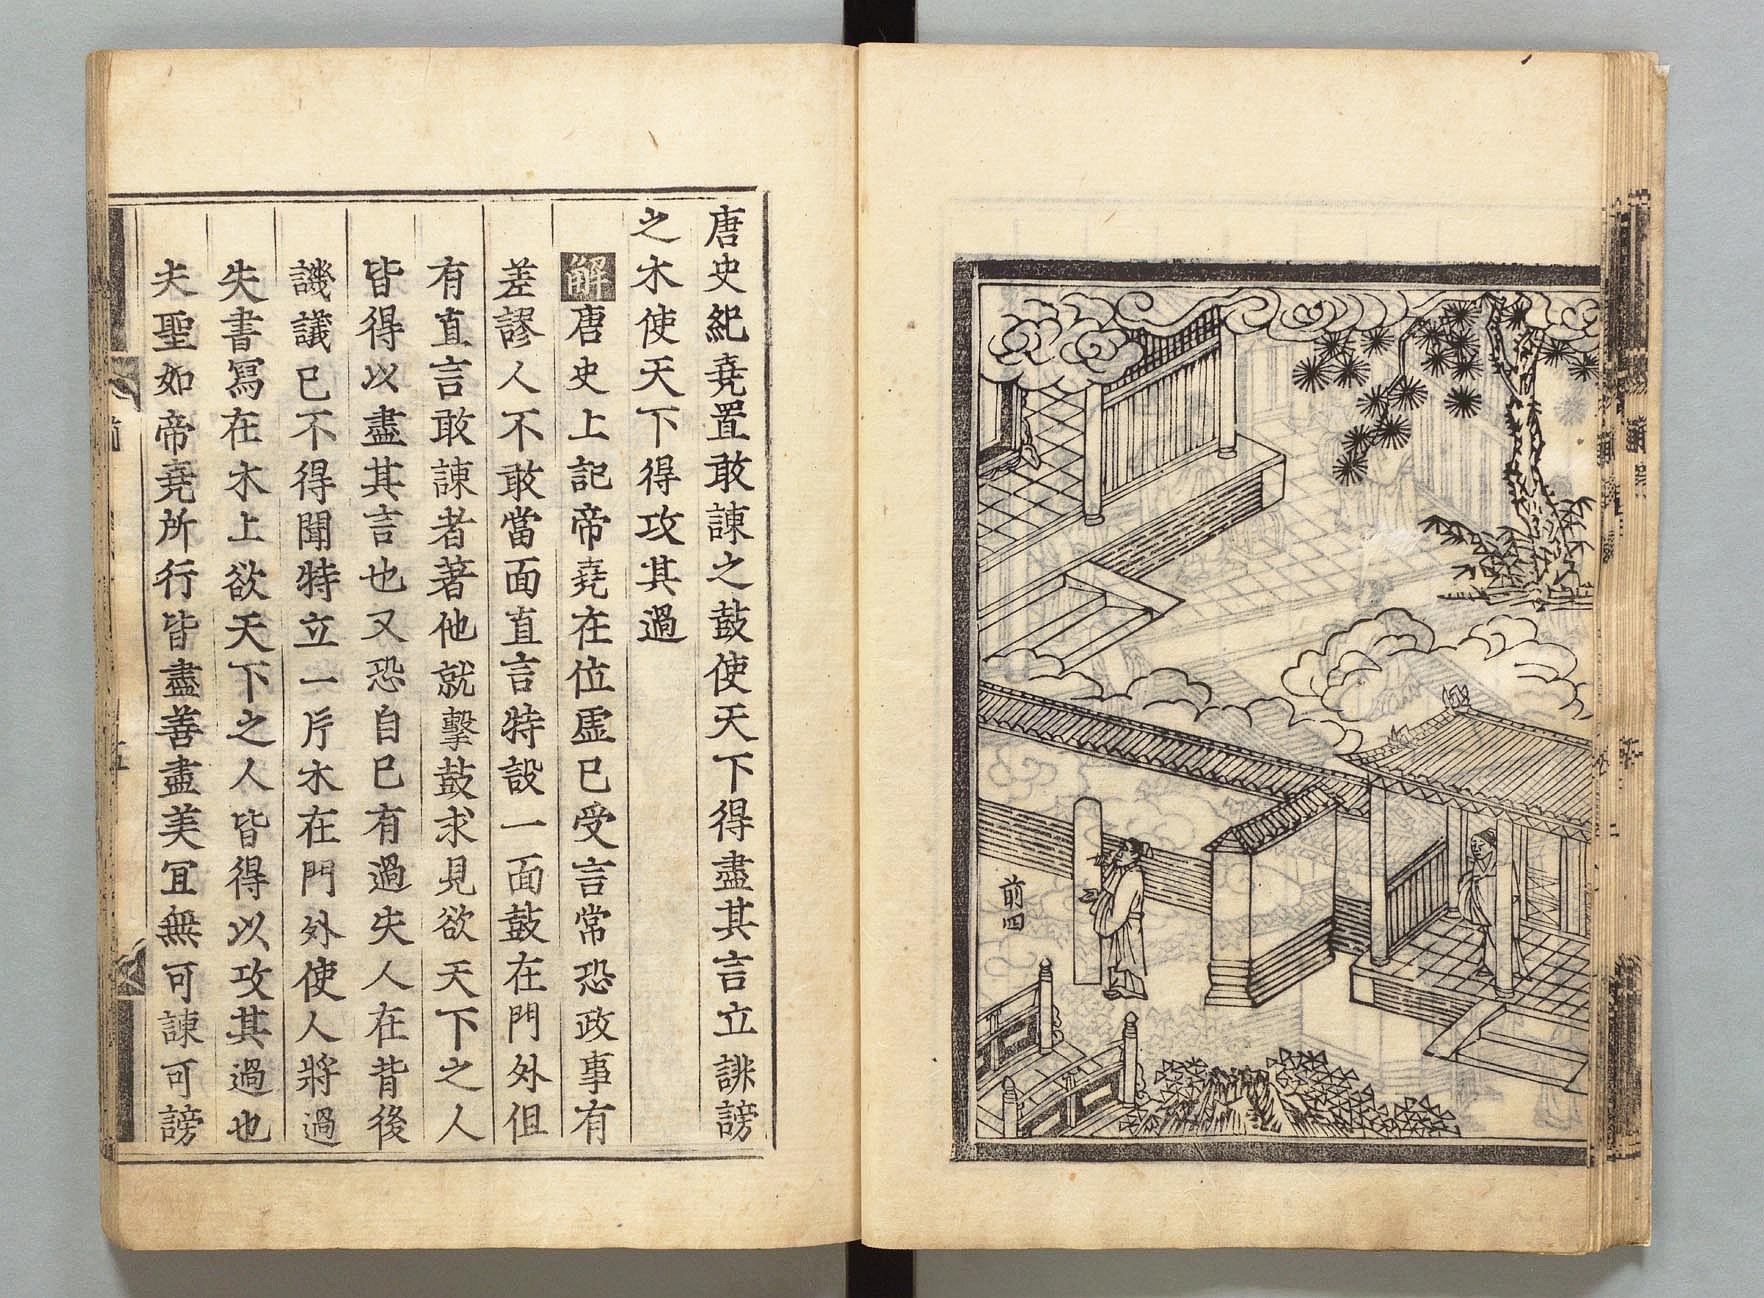 前四
唐史紀堯置敢諫之鼓使天下得盡其言立誹謗
之木使天下得攻其過
解唐史上記帝堯在位虛己受言常恐政事有
差謬人不敢當面直言特設一面鼓在門外但
有直言敢諫者著他就擊鼓求見欲天下之人
皆得以盡其言也又恐自己有過失人在背後
譏議己不得聞特立一片木在門外使人將過
失書寫在木上欲天下之人皆得以攻其過也
夫聖如帝堯所行皆盡善盡美宜無可諫可謗